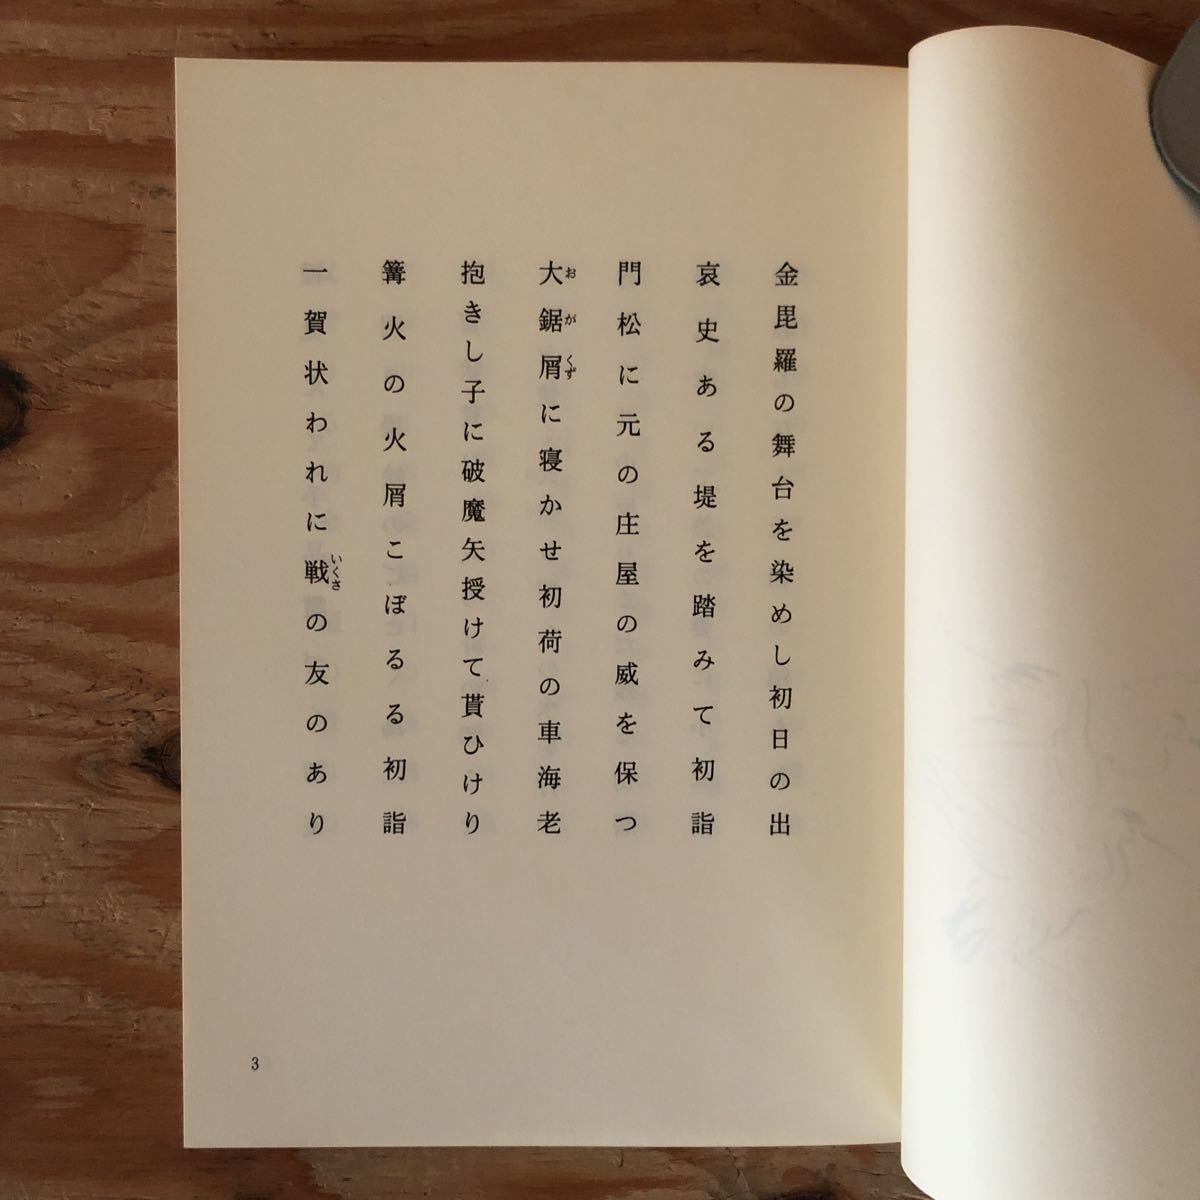 金毘羅の舞台を染めし初日の出
哀史ある堤を踏みて初詣
門松に元の庄屋の威を保つ
大鋸屑に寝かせ初荷の車海老
おがくず
抱きし子に破魔矢授けて貰ひけり
篝火の火屑こぼるる初詣
一賀状われに戦の友のあり
いくさ
3